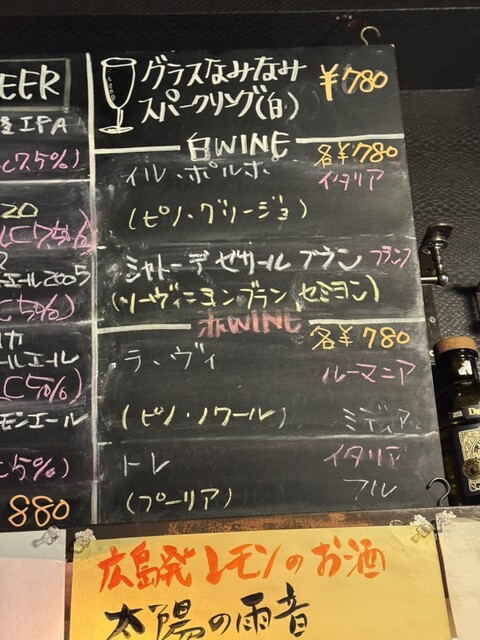 EER
IPA
(7.5%)
ZO
エール2005
5%)
ルエール
モンエール
5%)
880
グラスなみなみ
スパークリング(白) ¥780
白WINE 各¥780
イル・ポルポ イタリア
(ピノ・グリージョ)
シャトーデ ゼサール ブラン フランス
(ソーヴィニヨンブラン, セミヨン)
赤WINE 各¥780
ラ・ヴィ ルーマニア
(ピノ・ノワール) ミディアム
トレ イタリア
(プーリア) フル
広島発 レモンのお酒
太陽の雨音